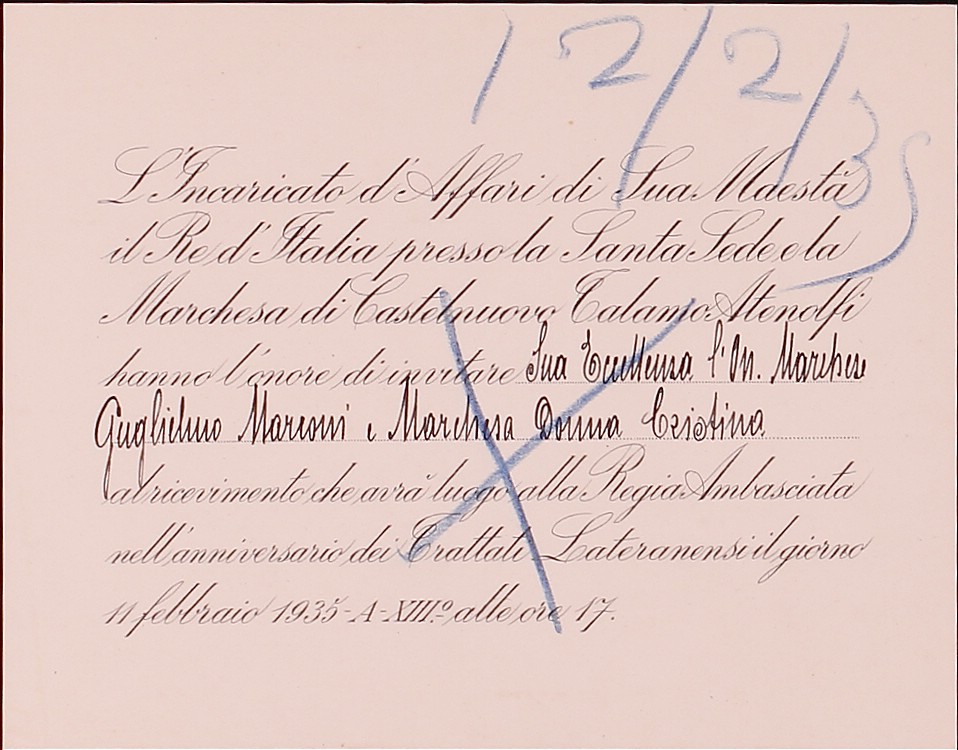 12/2/35
L'Incaricato d'Affari di Sua Maestà
il Re d'Italia presso la Santa Sede e la
Marchesa di Castelnuovo Talamo Atenolfi
hanno l'onore di invitare Sua Eccellenza l'On. Marchese
Guglielmo Marconi e Marchesa Donna Cristina
al ricevimento che avrà luogo alla Regia Ambasciata
nell'anniversario dei Trattati Lateranensi il giorno
11 febbraio 1935-A-XIII.º alle ore 17.